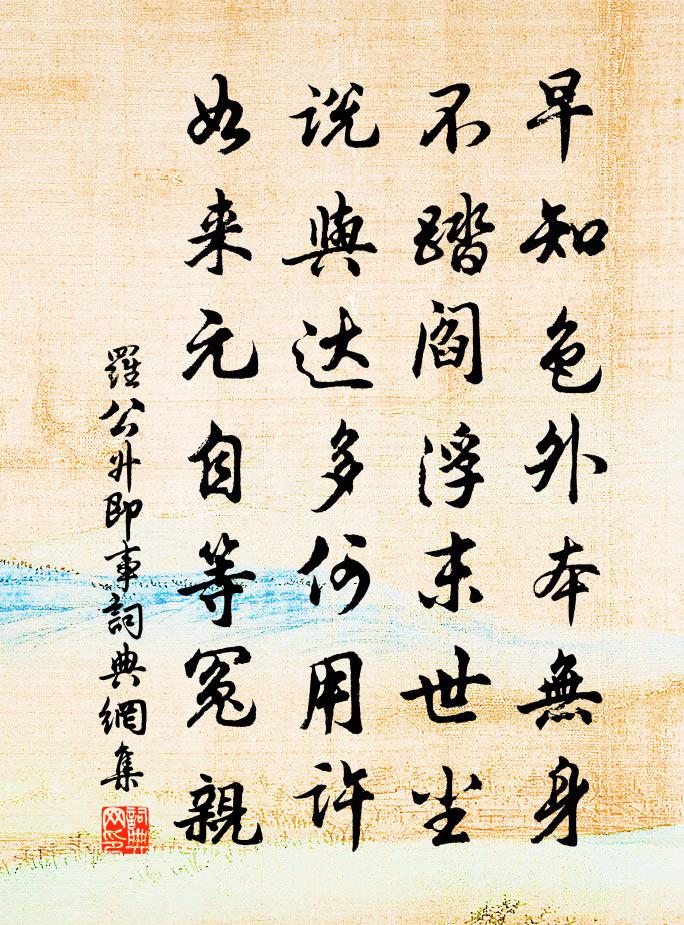 早知色外本無身
不踏閻浮末世尘
説與达多何用許
如来元自等冤親
羅公升即事詞典網集
詞典网印